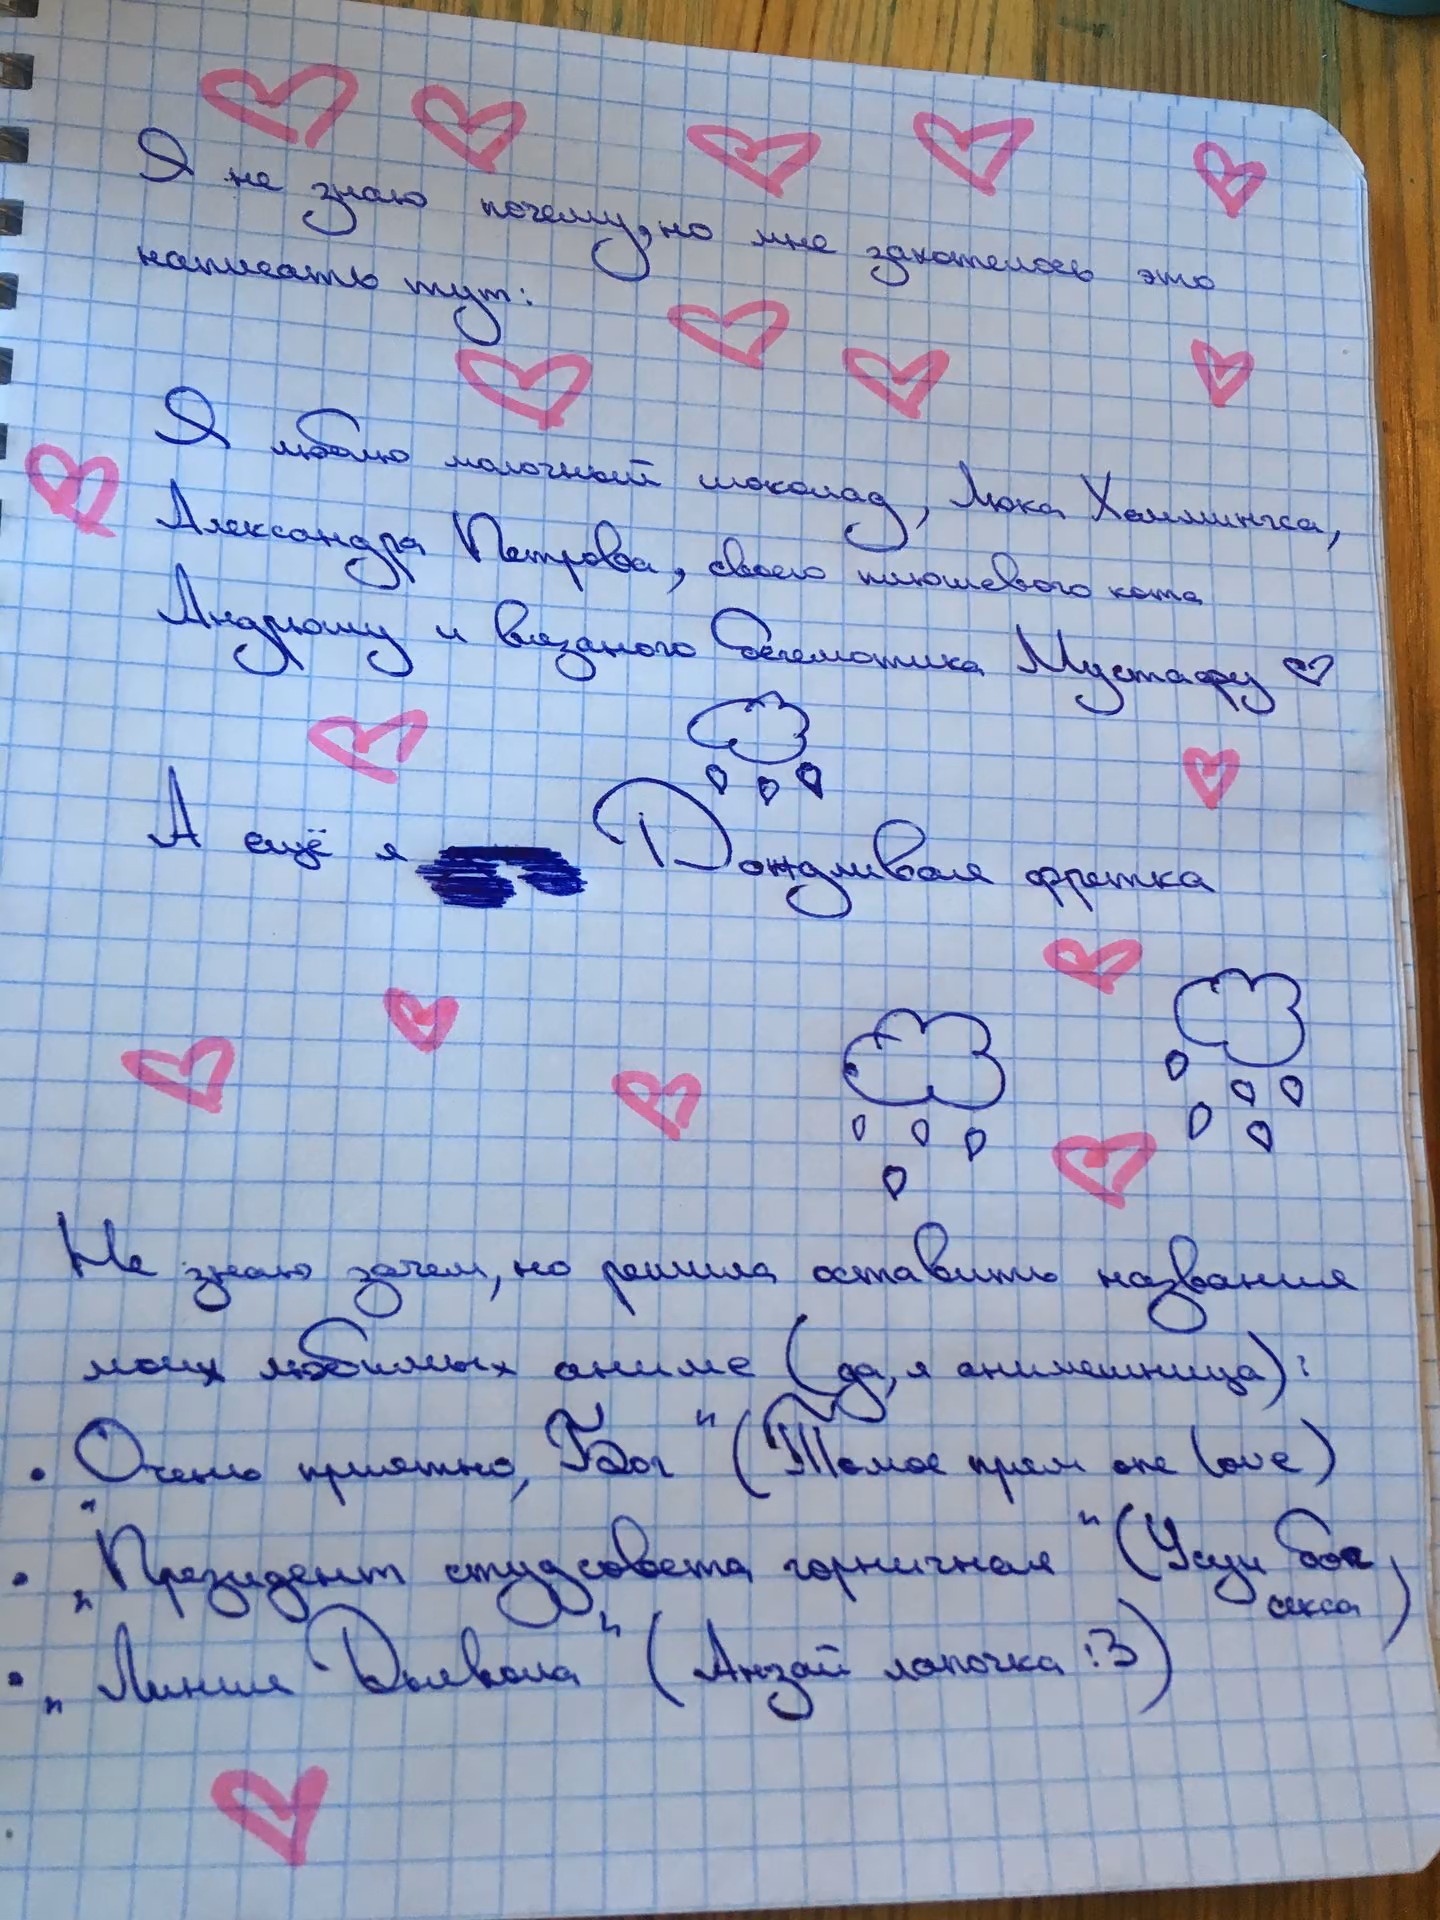 Я не знаю почему, но мне захотелось это
написать тут:
Я люблю молочный шоколад, Люка Хеммингса,
Александра Петрова, своего плюшевого кота
Андрюшу и вязаного бегемотика Мустафу ♡
А ещё я Дождливая фретка
Не знаю зачем, но решила оставить названия
моих любимых аниме (да, я анимешница):
• „Очень приятно, Бог" (Томое прям one love)
• „Президент студсовета горничная" (Усуи бог секса)
• „Линия Дьявола" (Анзай лапочка :3)